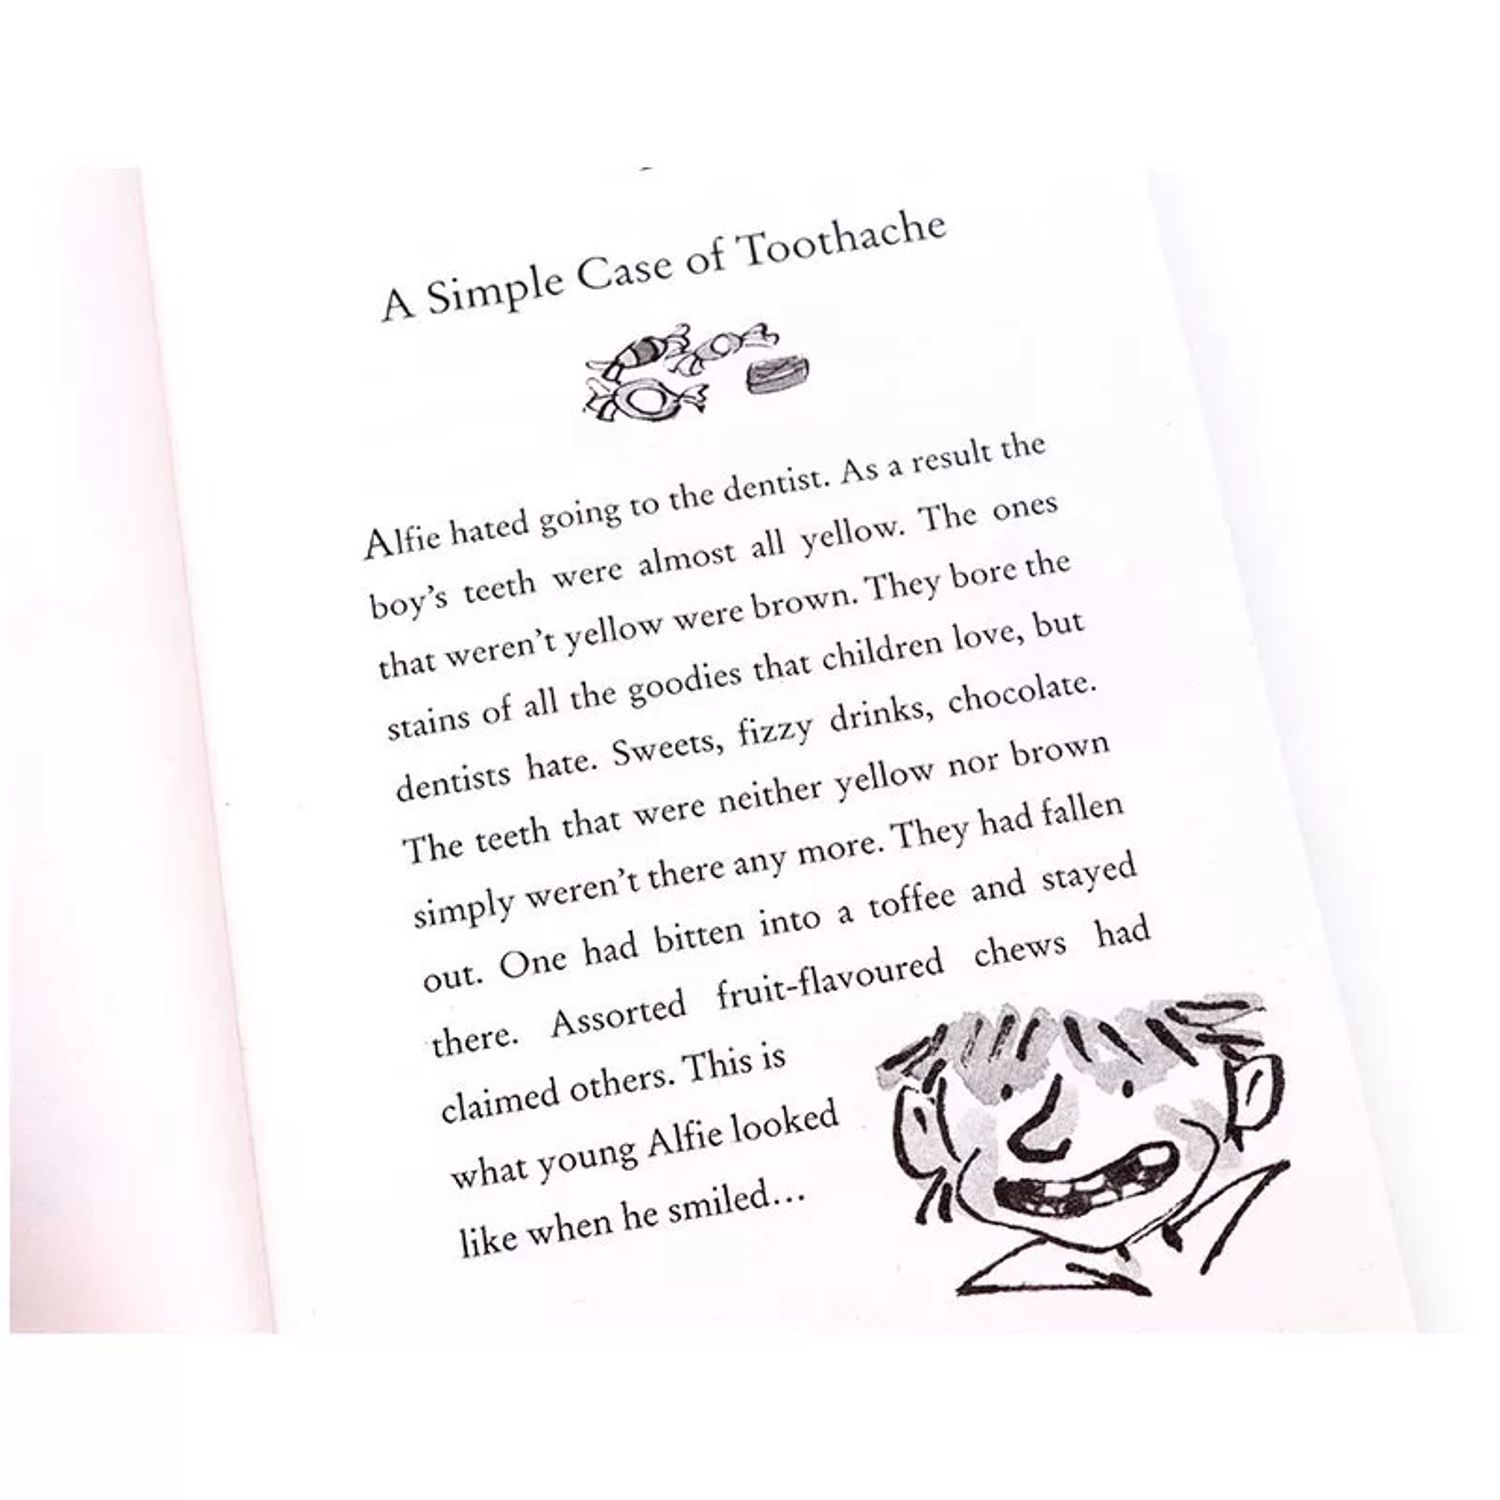 A Simple Case of Toothache
Alfie hated going to the dentist. As a result the
boy's teeth were almost all yellow. The ones
that weren't yellow were brown. They bore the
stains of all the goodies that children love, but
dentists hate. Sweets, fizzy drinks, chocolate.
The teeth that were neither yellow nor brown
simply weren't there any more. They had fallen
out. One had bitten into a toffee and stayed
there. Assorted fruit-flavoured chews had
claimed others. This is
what young Alfie looked
like when he smiled…